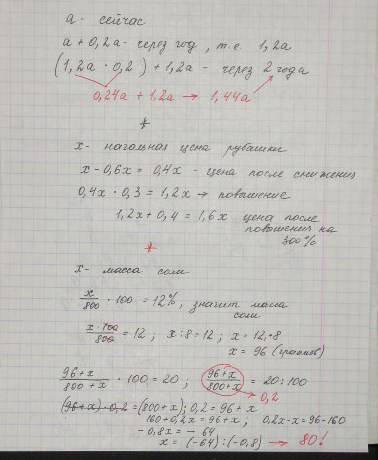 а - сейчас
а + 0,2а - через год, т.е. 1,2а
(1,2а · 0,2) + 1,2а - через 2 года
0,24а + 1,2а → 1,44а
*
х - начальная цена рубашки
х - 0,6х = 0,4х - цена после снижения
0,4х · 0,3 = 1,2х → повышение
1,2х + 0,4 = 1,6х цена после
повышения на
300%
*
х - масса соли
х/800 · 100 = 12%, значит масса
соли
х·100/800 = 12; х : 8 = 12; х = 12·8
х = 96 (граммов)
96+х/800+х · 100 = 20; 96+х/800+х = 20:100
0,2
(96+х)·0,2 = (800+х); 0,2 = 96+х
160+0,2х = 96+х; 0,2х-х = 96-160
-0,8х = -64
х = (-64):(-0,8) → 80!